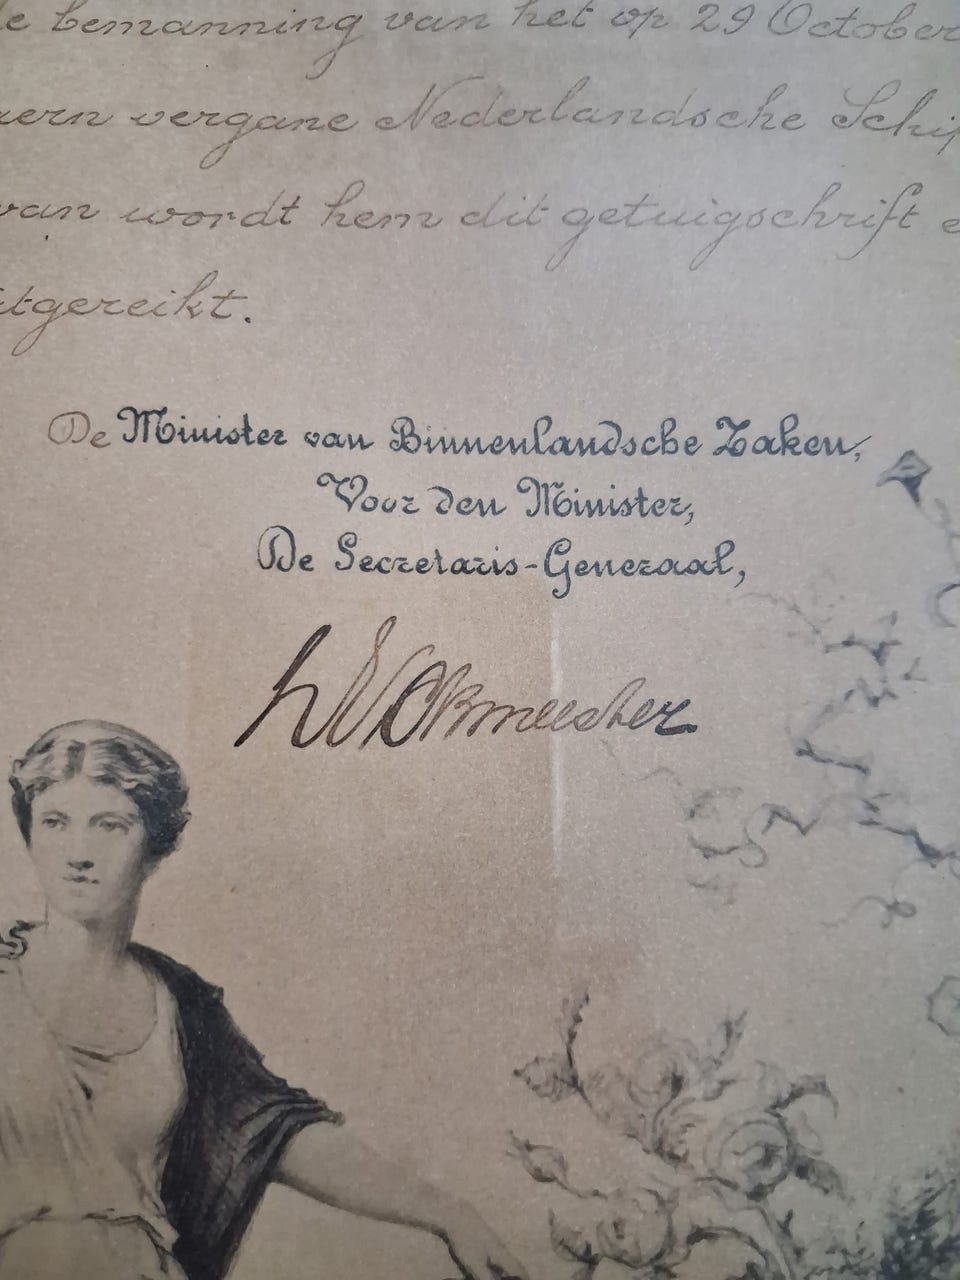 de bemanning van het op 29 October
vergane Nederlandsche Schip
van wordt hem dit getuigschrift
itgereikt.
De Minister van Binnenlandsche Zaken,
Voor den Minister,
De Secretaris-Generaal,